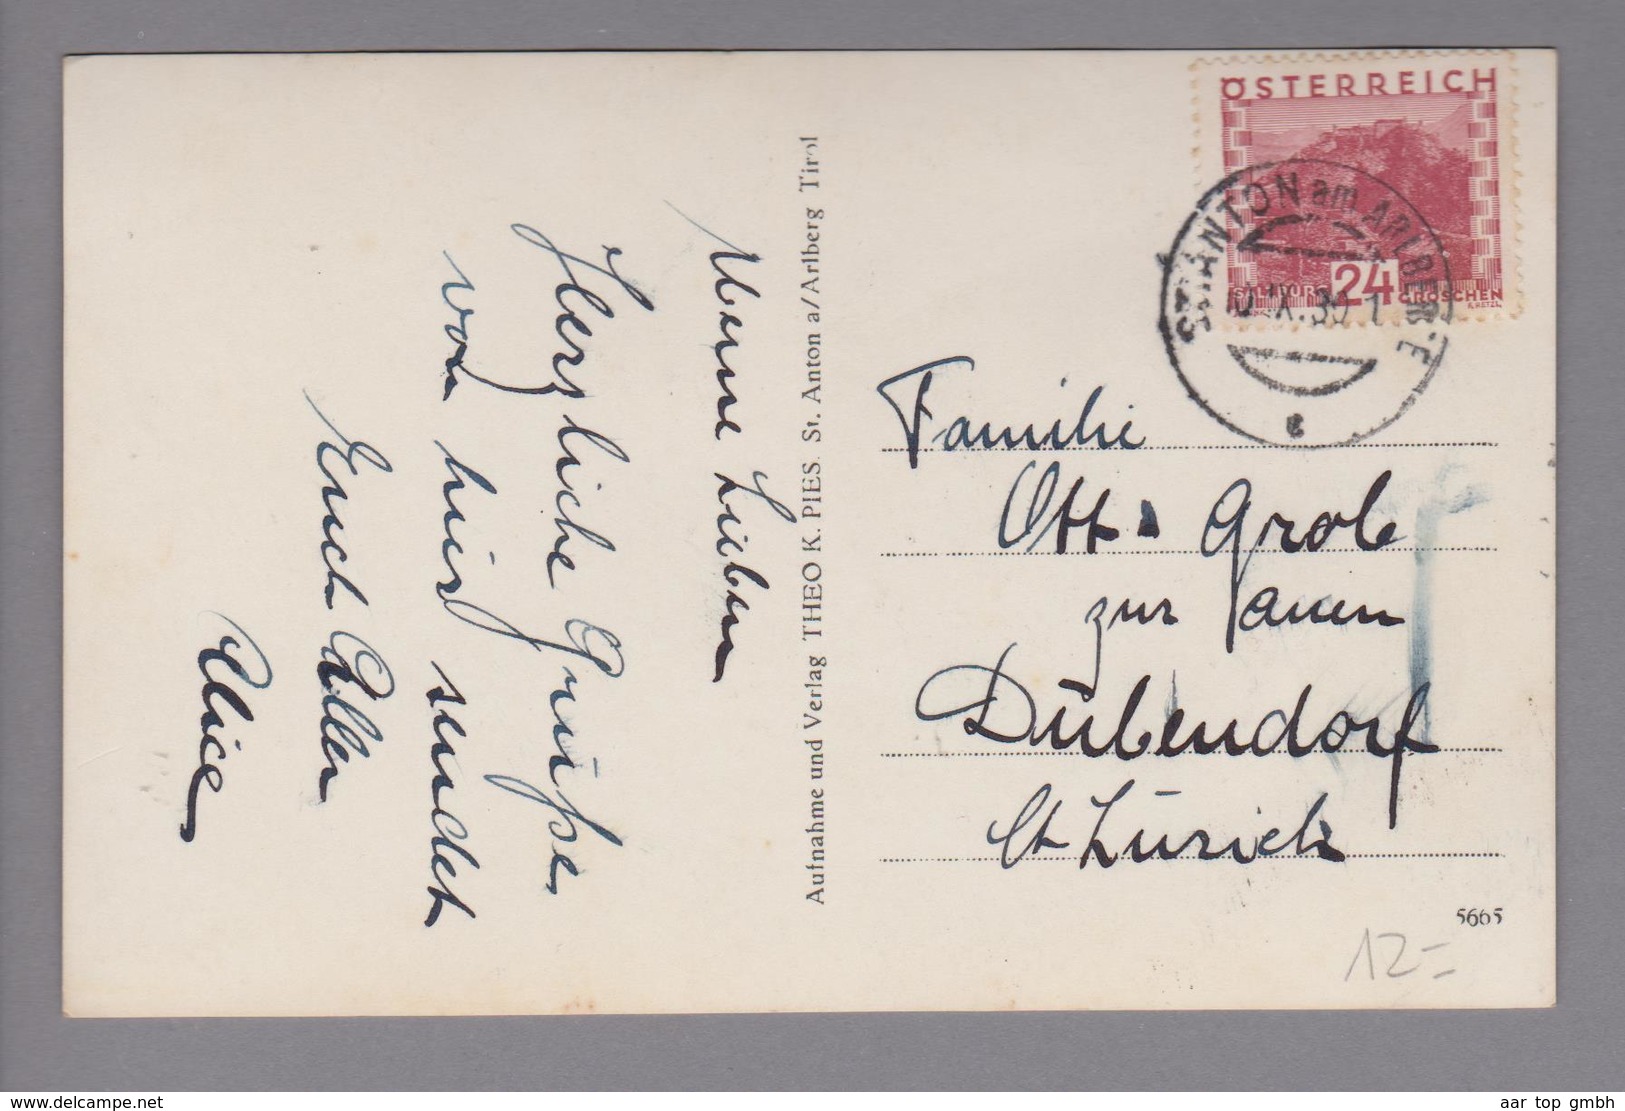 Meine Lieben
Herzliche Grüße
von hier sendet
Euch Allen
Alice
Aufnahme und Verlag THEO K. PIES. St. Anton a/Arlberg Tirol
ÖSTERREICH
24
GROSCHEN
ST. ANTON am ARLBERG
IX. 30
a
Familie
Ott - Grob
zur Tannen
Dübendorf
Ct Zürich
5665
12=
www.delcampe.net
aar top gmbh